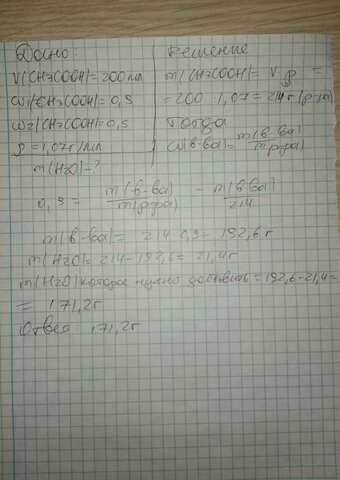 Дано:
V(CH3COOH)=200мл
W1(CH3COOH)=0,9
W2(CH3COOH)=0,5
ρ=1,07г/мл
m(H2O)-?
Решение
m(CH3COOH)= V ρ =
=200 1,07=214г(р-ра)
тогда
W(в-ва)= m(в-ва) / m(р-ра)
0,9= m(в-ва) / m(р-ра) = m(в-ва) / 214
m(в-ва)= 214 0,9=192,6г
m(H2O)=214-192,6=21,4г
m(H2O) которое нужно добавить=192,6-21,4=
= 171,2г
Ответ 171,2г